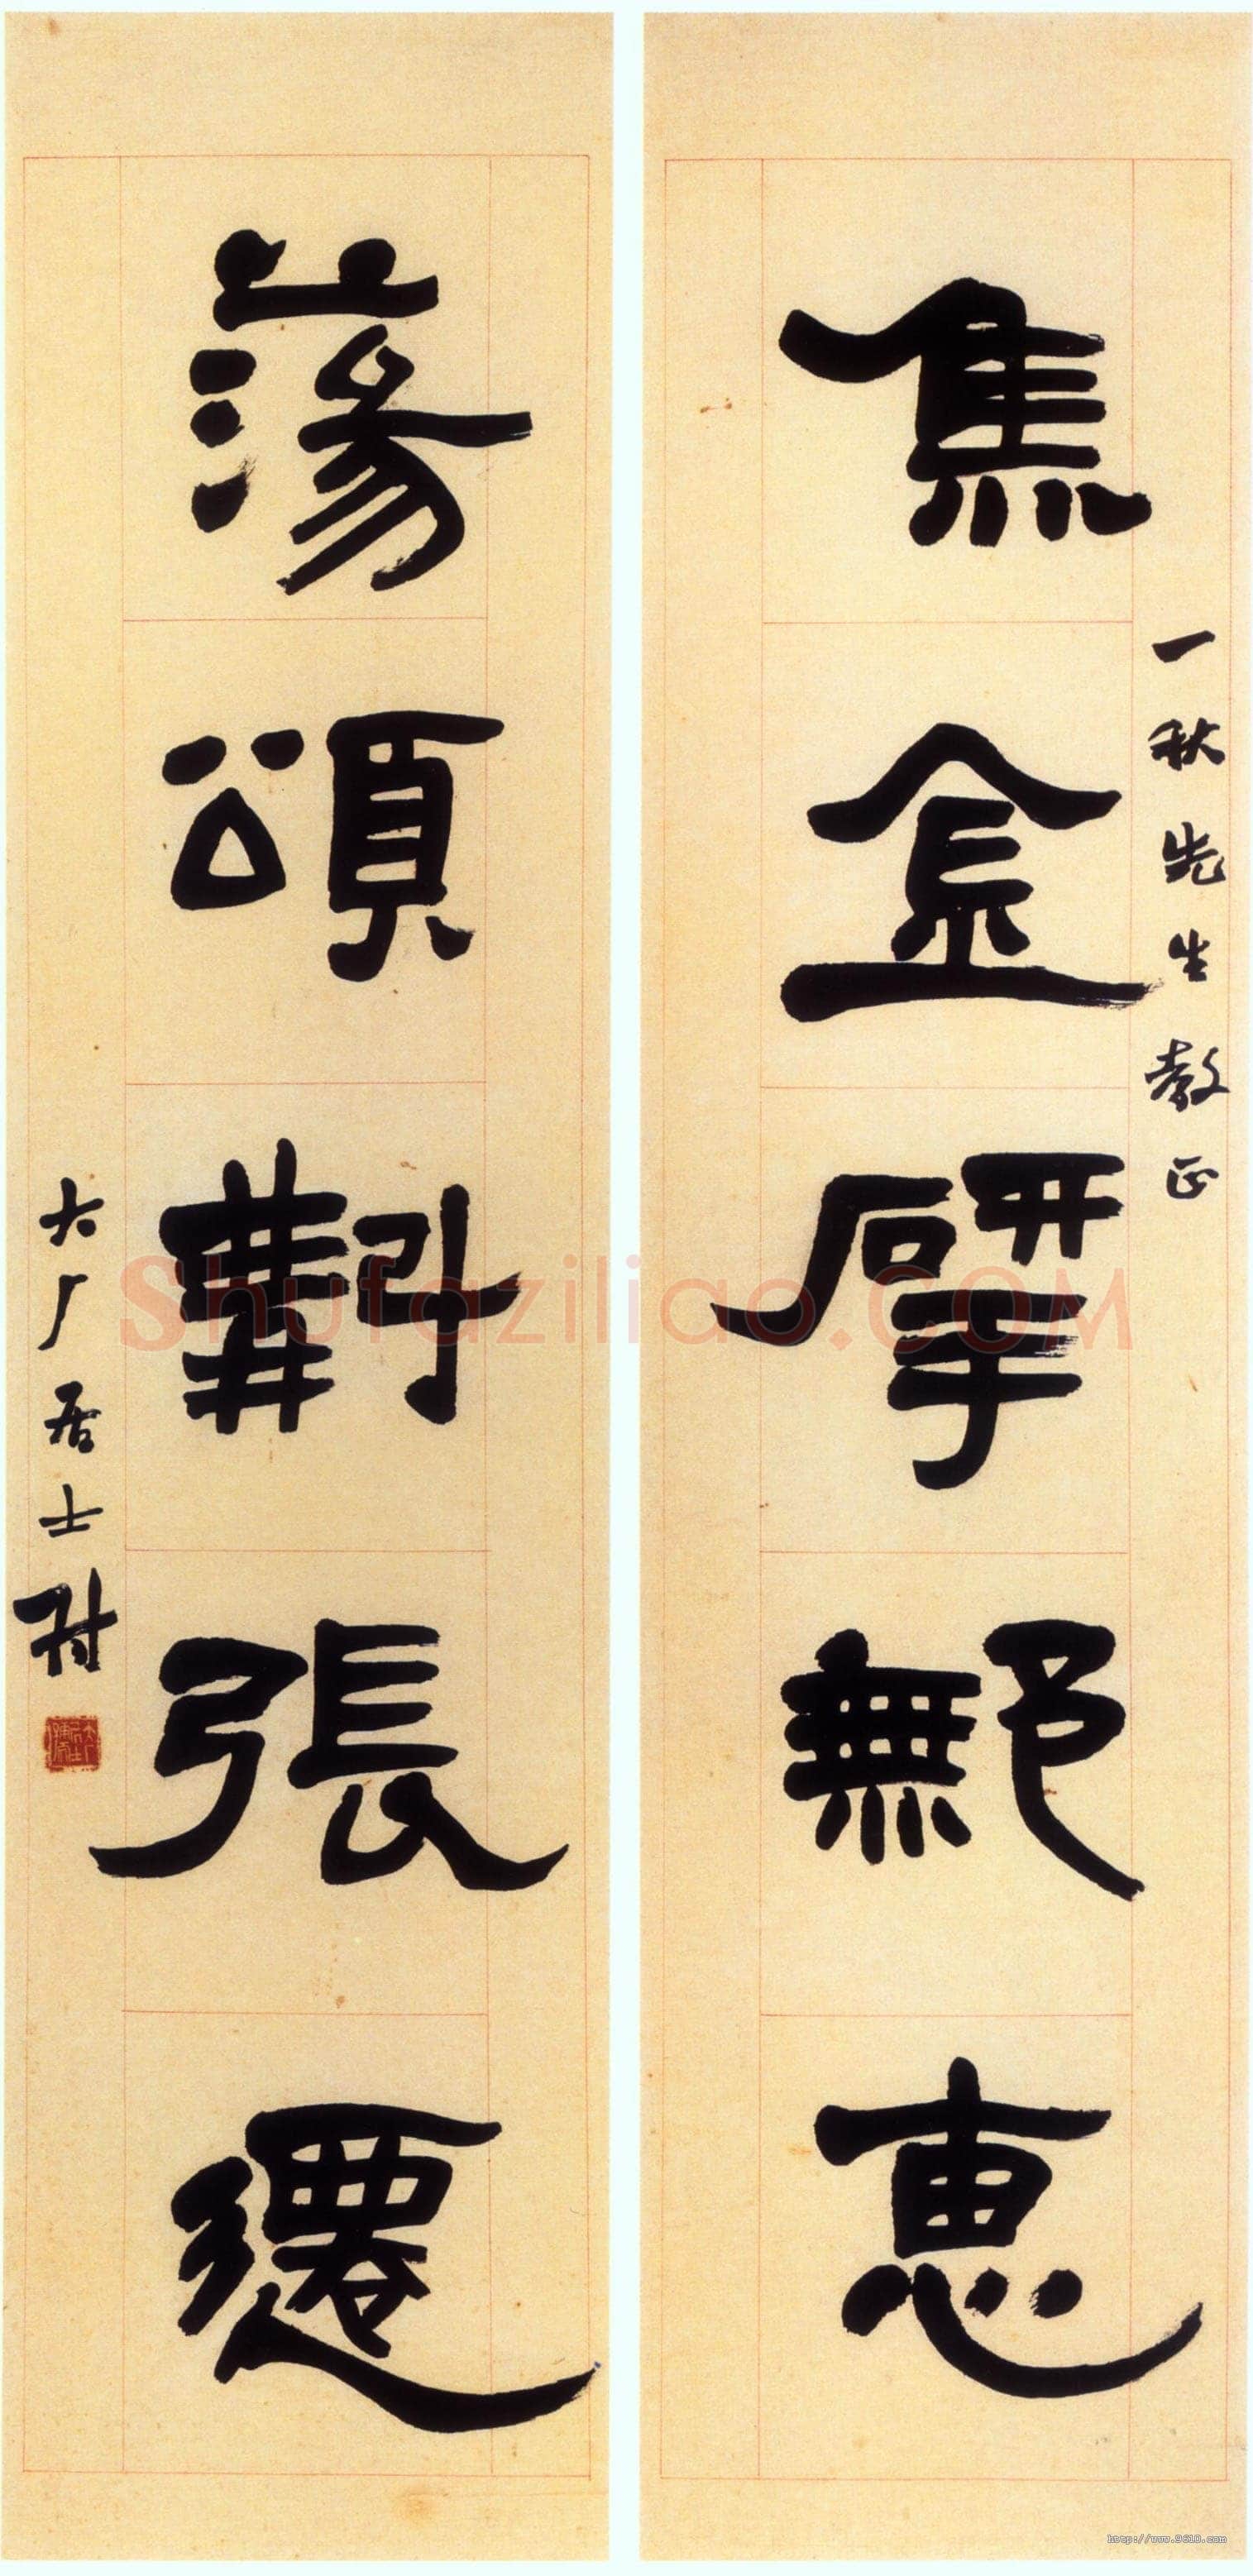 焦金揅鄦惠
一秋先生教正
蕩頌斠張遷
大厂居士
Shufaziliao.COM
http://www.9610.com